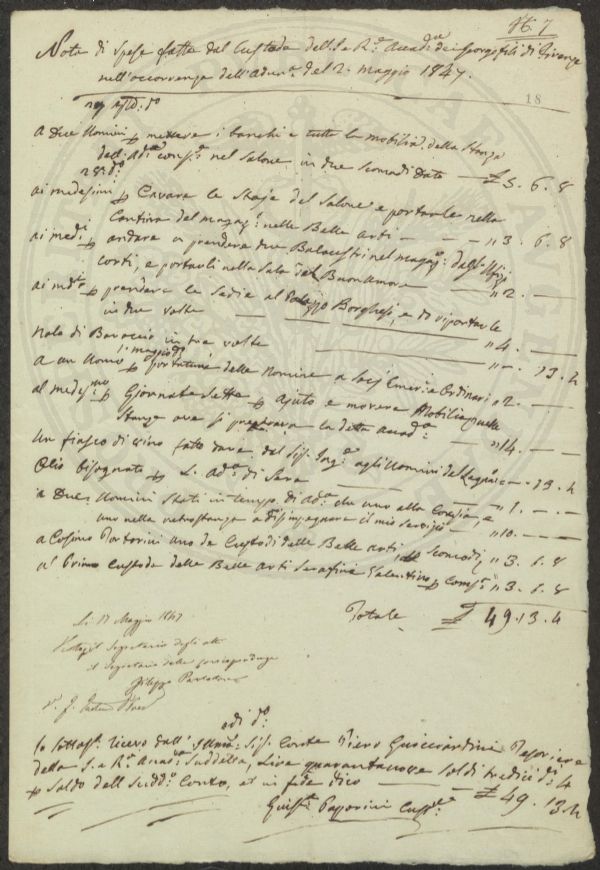 N. 7
Nota di Spese fatte dal Custode della I. e R.e Accad.a dei Georgofili di Firenze
nell'occorrenza dell'adun.a del 2. Maggio 1847.
18
A Due Uomini p mettere i banchi e tutta la mobilia della Stanza
dell'Ad.a nel Salone in due £ 5. 6. 8
28. d.o
ai medesimi p Cavare le Staje del Salone e portarle nella
Cantina del magaz.o nelle Belle Arti — — — " 3. 6. 8
ai med.i p andare a prendere due Balaustri nel magaz.o degl'Ufizi
corti, e portarli nella Sala del Buonumore — " 2. — —
ai md.i p prendere le Sedie al Palazzo Borghesi, e di riportarle
in due volte — — " 4. — —
Nolo di in tre volte — — " —. 13. 4
A un Uomo p portatura delle Nomine a Socj Emeri e Ordinari " 2. — —
al medesimo p Giornate Sette p ajuto e movere Mobilia nelle
Stanze ove si preparava la detta Accad.a — " 14. — —
Un fiasco di vino fatto dare dal Sig. Ing.e agli Uomini del —. 13. 4
Olio bisognato p L'Ad.a di Sera — " 1. — —
a Due Uomini Stati in tempo di Ad.a che uno alla e
uno nella retrostanza a disimpegnare il mio servizio — " 10. — —
a Cosimo Portorini uno de Custodi delle Belle Arti p " 3. 6. 8
al Primo Custode delle Belle Arti Serafino p " 3. 6. 8
Totale £ 49. 13. 4
Li 17 Maggio 1847
Il Segretario degli atti
il Segretario delle corrispondenze
Filippo
adi d.o
Io sottos.o ricevo dall'Illmo. Sig. Conte Piero Guicciardini Tesoriere
della I. e R.e Accad.a Suddetta, Lire quarantanove soldi tredici d. 4
p Saldo dell Sudd.o Conto, et in fede dico — £ 49. 13. 4